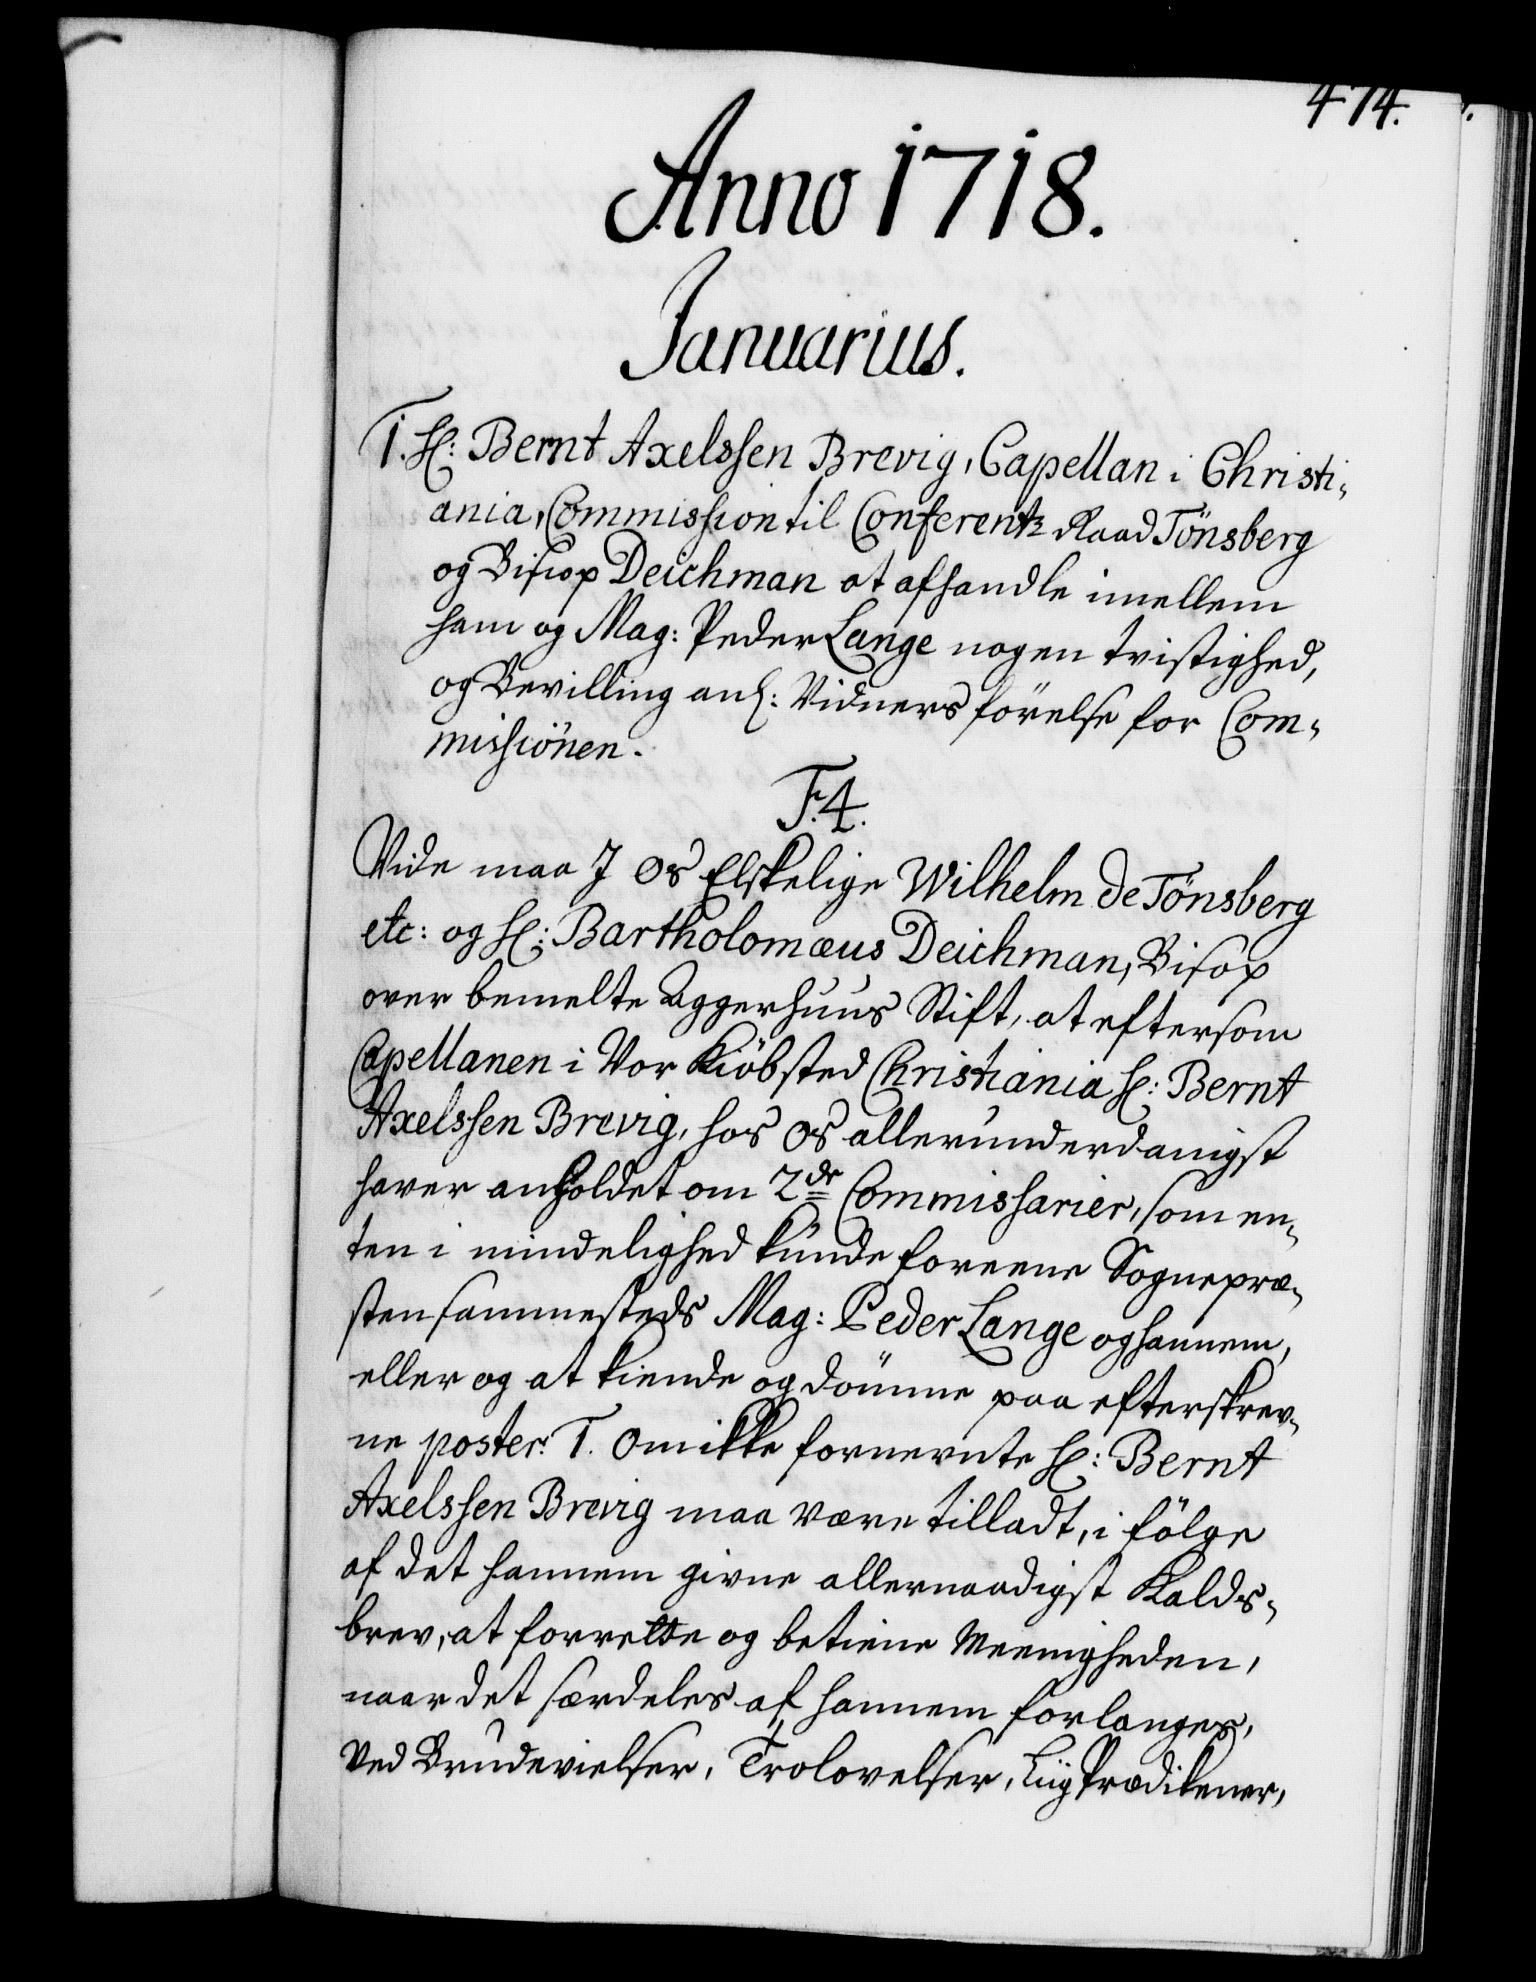 474.
Anno 1718.
Januarius.
1. H: Bernt Axelssen Brevig, Capellan i Christi-
ania, Commission til Conferentz Raad Tönsberg
og Bisop Deichman at afhandle imellem
ham og Mag: Peder Lange nogen tvistighed,
og Bevilling anl: Vidners förelse for Com-
missionen.
F. 4.
Vide maa I Os Elskelige Wilhelm de Tönsberg
etc: og H: Bartholomæus Deichman, Bisop
over bemelte Aggerhuus Stift, at eftersom
Capellanen i Vor Kiöbsted Christiania H: Bernt
Axelssen Brevig, hos Os allerunderdanigst
haver anholdet om 2de Commissarier, som en-
ten i mindelighed kunde foreene Sognepræ-
sten sammesteds Mag: Peder Lange og hannem,
eller og at kiende og dömme paa efterskrev-
ne poster: 1. Om ikke fornevnte H: Bernt
Axelssen Brevig maa være tilladt, i fölge
af det hannem givne allernaadigst Kalds-
brev, at forrette og betiene Meenigheden,
naar det særdeles af hannem forlanges,
ved Brudevielser, Trolovelser, Liig Prædikener,